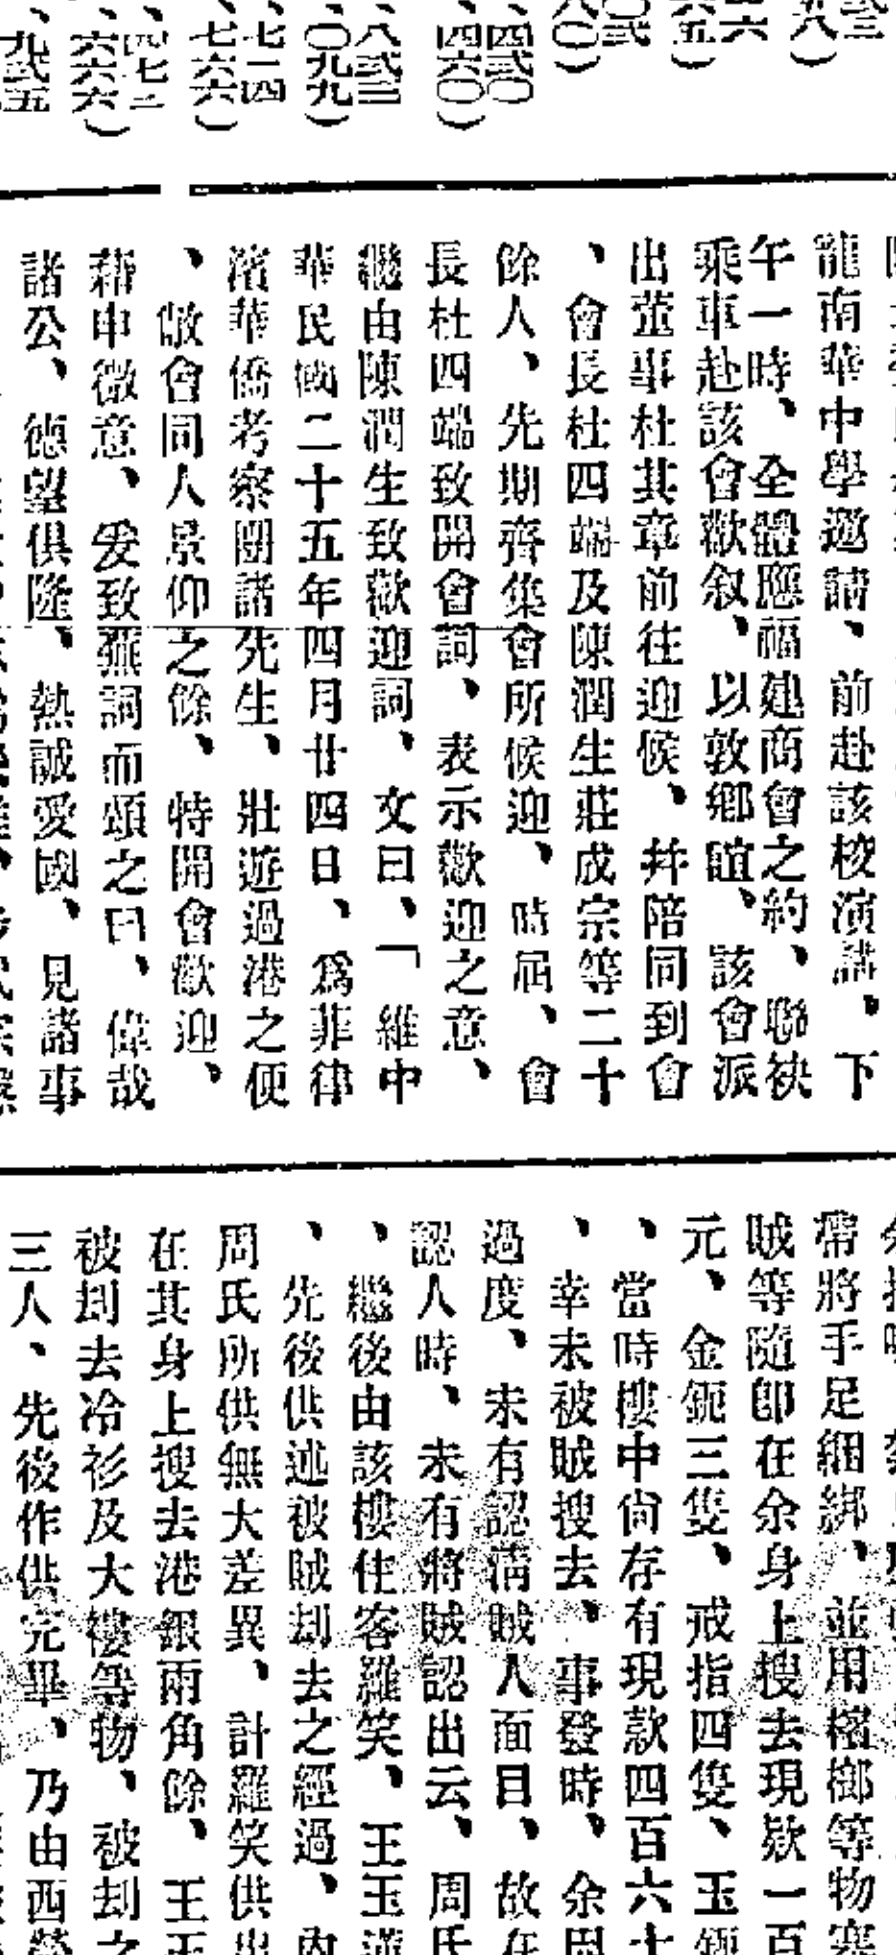 八〇）
六五）
四弍〇
四六〇）
八弍三
〇九九）
七一四
七六六）
四七二
六六六）
九弍五
龍南華中學邀請、前赴該校演講、下
午一時、全體應福建商會之約、聯袂
乘車赴該會歡叙、以敦鄉誼、該會派
出董事杜其章前往迎候、幷陪同到會
、會長杜四端及陳潤生莊成宗等二十
餘人、先期齊集會所候迎、時屆、會
長杜四端致開會詞、表示歡迎之意、
繼由陳潤生致歡迎詞、文曰、「維中
華民國二十五年四月廿四日、爲菲律
濱華僑考察團諸先生、壯遊過港之便
、敝會同人景仰之餘、特開會歡迎、
藉申微意、爰致蕪詞而頌之曰、偉哉
諸公、德望俱隆、熱誠愛國、見諸事
帶將手足綑綁、並用檳榔等物塞
賊等隨即在余身上搜去現欵一百
元、金鈪三隻、戒指四隻、玉鈪
、當時樓中尙存有現款四百六十
、幸未被賊搜去、事發時、余因
過度、未有認淸賊人面目、故在
認人時、未有將賊認出云、周氏
、繼後由該樓住客羅笑、王玉蓮
、先後供述被賊刦去之經過、內
周氏所供無大差異、計羅笑供出
在其身上搜去港銀兩角餘、王玉
被刦去冷衫及大褸等物、被刦之
三人、先後作供完畢、乃由西營